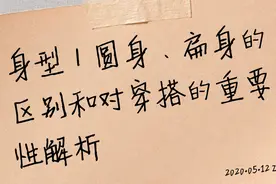 身型|圆身、扁身的
区别和对穿搭的重要
性解析
2020-05-12